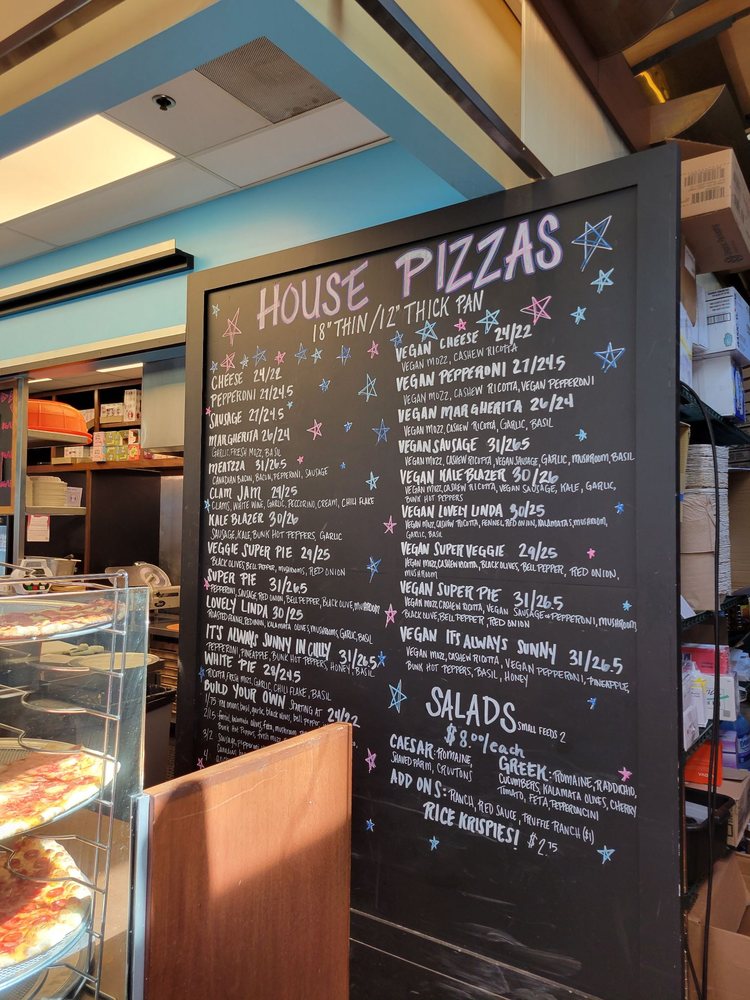 HOUSE PIZZAS
18" THIN / 12" THICK PAN
CHEESE 24/22
PEPPERONI 27/24.5
SAUSAGE 27/24.5
MARGHERITA 26/24
GARLIC, FRESH MOZZ, BASIL
MEATZZA 31/26.5
CANADIAN BACON, BACON, PEPPERONI, SAUSAGE
CLAM JAM 29/25
CLAMS, WHITE WINE, GARLIC, PECORINO, CREAM, CHILI FLAKE
KALE BLAZER 30/26
SAUSAGE, KALE, BUNK HOT PEPPERS, GARLIC
VEGGIE SUPER PIE 29/25
BLACK OLIVES, BELL PEPPER, MUSHROOMS, RED ONION
SUPER PIE 31/26.5
PEPPERONI, SAUSAGE, RED ONION, BELL PEPPER, BLACK OLIVE, MUSHROOMS
LOVELY LINDA 30/25
ROASTED FENNEL, RED ONION, KALAMATA OLIVES, MUSHROOMS, GARLIC, BASIL
IT'S ALWAYS SUNNY IN CHILLY 31/26.5
PEPPERONI, PINEAPPLE, BUNK HOT PEPPERS, HONEY, BASIL
WHITE PIE 29/24.5
RICOTTA, FRESH MOZZ, GARLIC, CHILI FLAKE, BASIL
BUILD YOUR OWN STARTING AT 24/22
1/.75 red onion, basil, garlic, black olives, bell pepper
2/1.5 fennel, kalamata olives, feta, mushroom
Bunk Hot Peppers, fresh mozz
3/2 Sausage, pepperoni
4
VEGAN CHEESE 24/22
VEGAN MOZZ, CASHEW RICOTTA
VEGAN PEPPERONI 27/24.5
VEGAN MOZZ, CASHEW RICOTTA, VEGAN PEPPERONI
VEGAN MARGHERITA 26/24
VEGAN MOZZ, CASHEW RICOTTA, GARLIC, BASIL
VEGAN SAUSAGE 31/26.5
VEGAN MOZZ, CASHEW RICOTTA, VEGAN SAUSAGE, GARLIC, MUSHROOM, BASIL
VEGAN KALE BLAZER 30/26
VEGAN MOZZ, CASHEW RICOTTA, VEGAN SAUSAGE, KALE, GARLIC,
BUNK HOT PEPPERS
VEGAN LOVELY LINDA 30/25
VEGAN MOZZ, CASHEW RICOTTA, FENNEL, RED ONION, KALAMATAS, MUSHROOM,
GARLIC, BASIL
VEGAN SUPER VEGGIE 29/25
VEGAN MOZZ, CASHEW RICOTTA, BLACK OLIVES, BELL PEPPER, RED ONION,
MUSHROOM
VEGAN SUPER PIE 31/26.5
VEGAN MOZZ, CASHEW RICOTTA, VEGAN SAUSAGE & PEPPERONI, MUSHROOM,
BLACK OLIVE, BELL PEPPER, RED ONION
VEGAN IT'S ALWAYS SUNNY 31/26.5
VEGAN MOZZ, CASHEW RICOTTA, VEGAN PEPPERONI, PINEAPPLE,
BUNK HOT PEPPERS, BASIL, HONEY
SALADS SMALL FEEDS 2
$8.00/each
CAESAR: ROMAINE,
SHAVED PARM, CROUTONS
GREEK: ROMAINE, RADDICHIO,
CUCUMBERS, KALAMATA OLIVES, CHERRY
TOMATO, FETA, PEPPERONCINI
ADD ONS: RANCH, RED SAUCE, TRUFFLE RANCH ($1)
RICE KRISPIES! $2.75